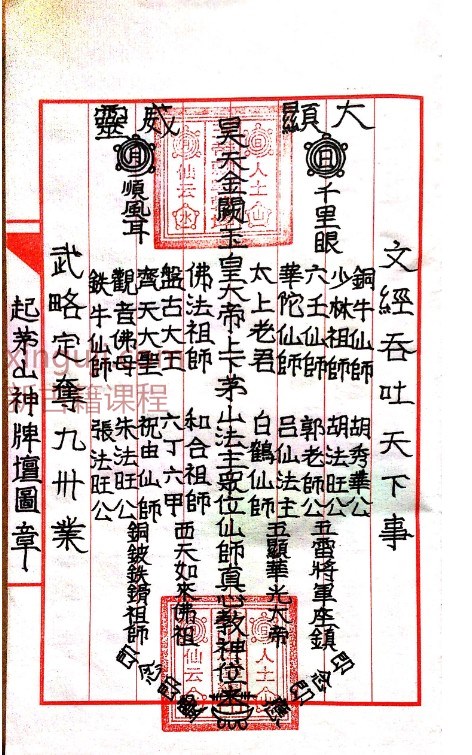 大顯威靈
文經吞吐天下事
日
千里眼
銅牛仙師
胡秀華公
少林祖師
胡法旺公
六壬仙師
郭老師公
五雷將軍座鎮
華陀仙師
呂仙法主
太上老君
白鶴仙師
五顯華光大帝
昊天金闕玉皇大帝上下茅山法主眾位仙師真心教神位
佛法祖師
和合祖師
盤古大王
六丁六甲
西天如來佛祖
齊天大聖
祝由仙師
觀音佛母
朱法旺公
銅鈸鉄鑼祖師
鉄牛仙師
張法旺公
月
順風耳
武略定奪九州業
起茅山神牌壇圖章
人土山
仙云水
人土
仙云
古籍课程